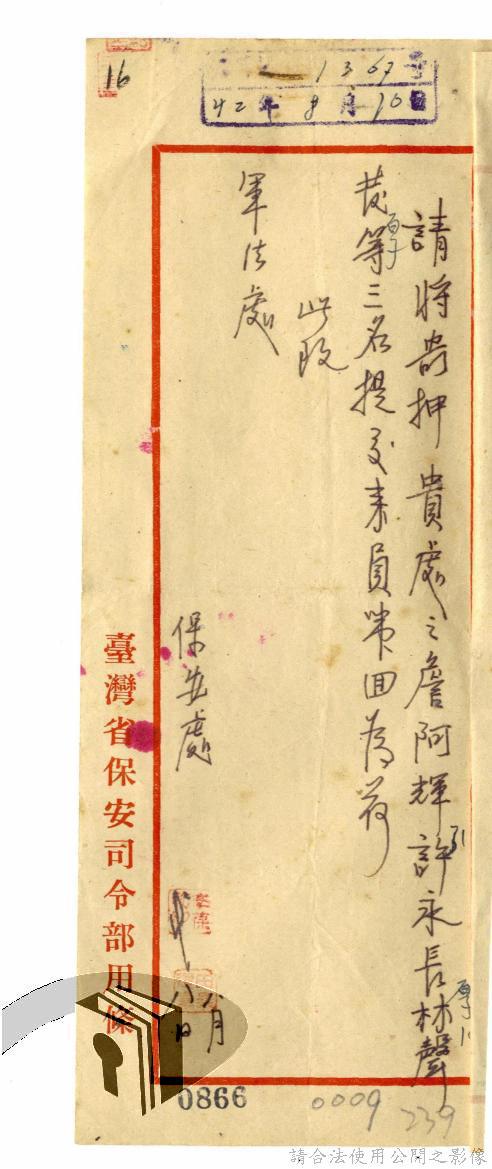 16
1367號
42年8月10日
請將寄押貴處之詹阿輝許永長林聲
發等三名提交來員帶回為荷
此致
軍法處
保安處
八月
日
臺灣省保安司令部用條
0866
0009
239
請合法使用公開之影像